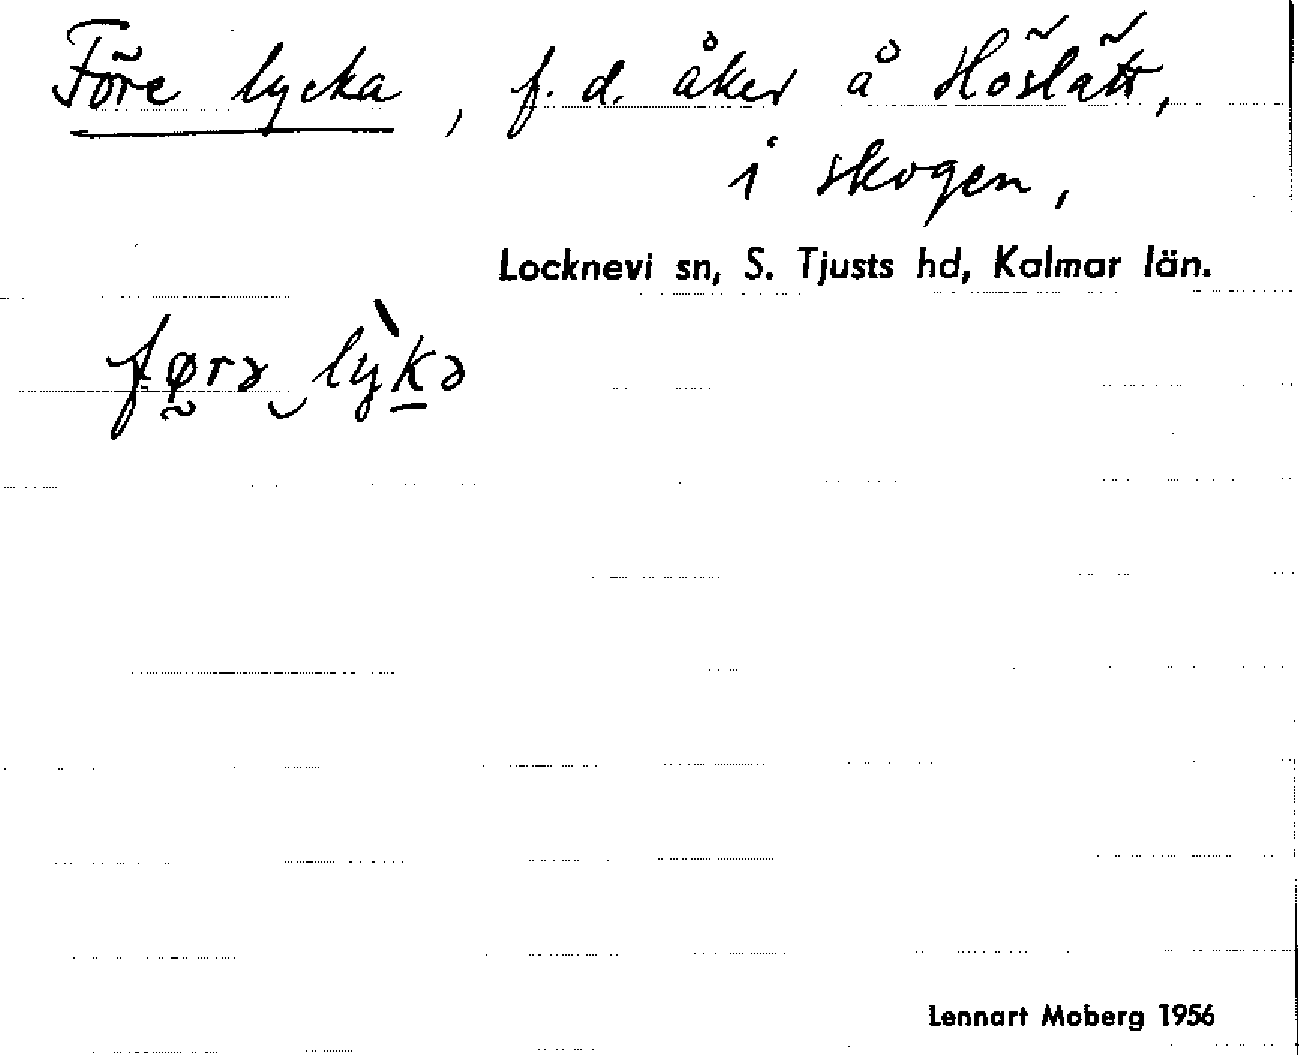 Före lycka, f. d. åker å Höslätt,
i skogen,
Locknevi sn, S. Tjusts hd, Kalmar län.
fø̰rə‿lỳk̲ə
Lennart Moberg 1956